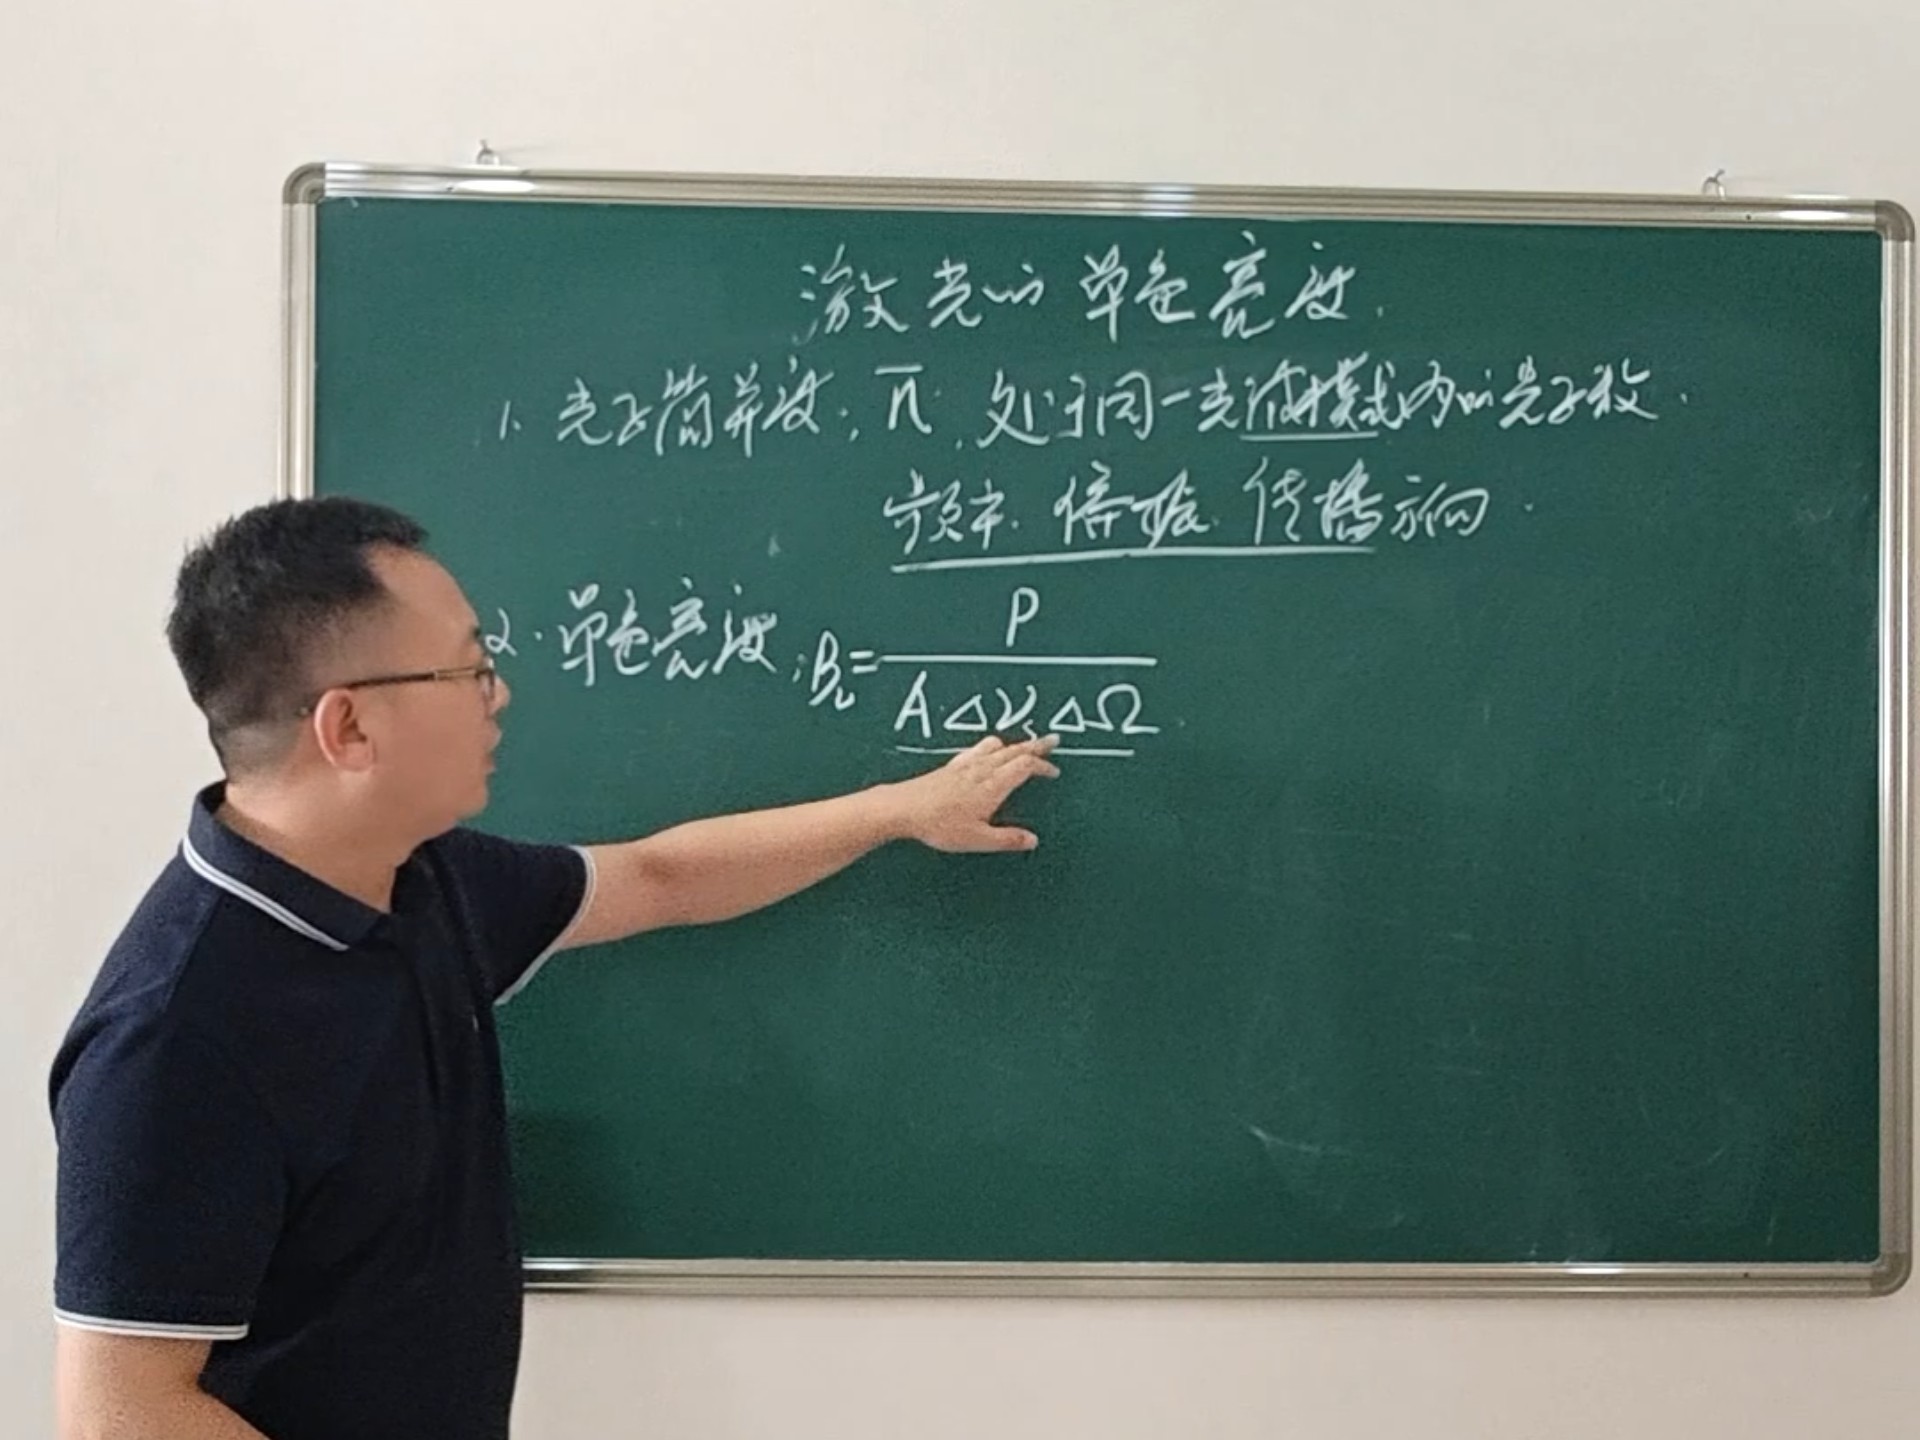 激光的单色亮度.
1. 光子简并度: n̅. 处于同一光波模式内的光子数.
频率. 偏振. 传播方向.
2. 单色亮度: Bν = P / (A·Δνs ΔΩ)